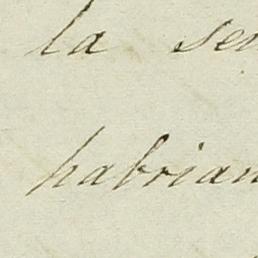 la se
habrian